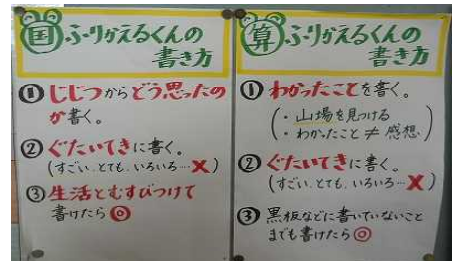 国ふりかえるくんの
書き方
①じじつからどう思ったの
か書く。
②ぐたいてきに書く。
(すごい、とても、いろいろ…X)
③生活とむすびつけて
書けたら◎
算ふりかえるくんの
書き方
①わかったことを書く。
(・山場を見つける
・わかったこと≠感想)
②ぐたいてきに書く。
(すごい、とても、いろいろ…X)
③黒板などに書いていないこと
までも書けたら◎